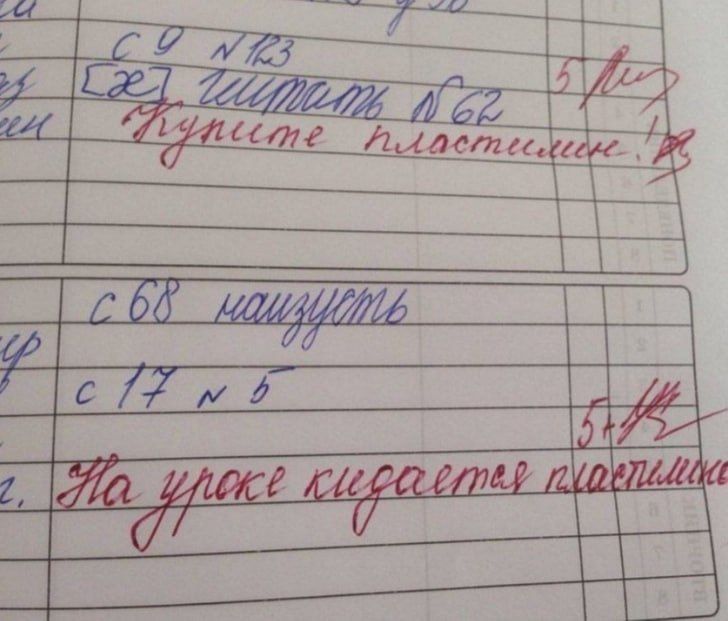 с 9 №123
[ж] читать №62 5
Купите пластилин!
с 68 наизусть
с 17 № 5
5+
г. На уроке кидается пластилин